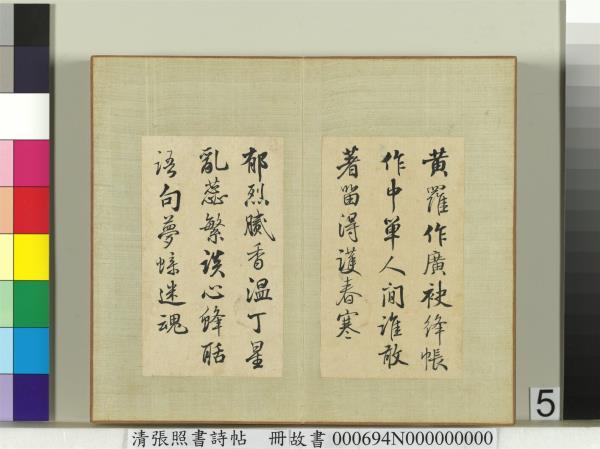 黄羅作廣袂絳帳
作中單人间誰敢
著留得護春寒
郁烈膩香溫丁星
亂蕊繁談心蜂聒
語句夢蝶迷魂
5
清張照書詩帖 冊故書 000694N000000000